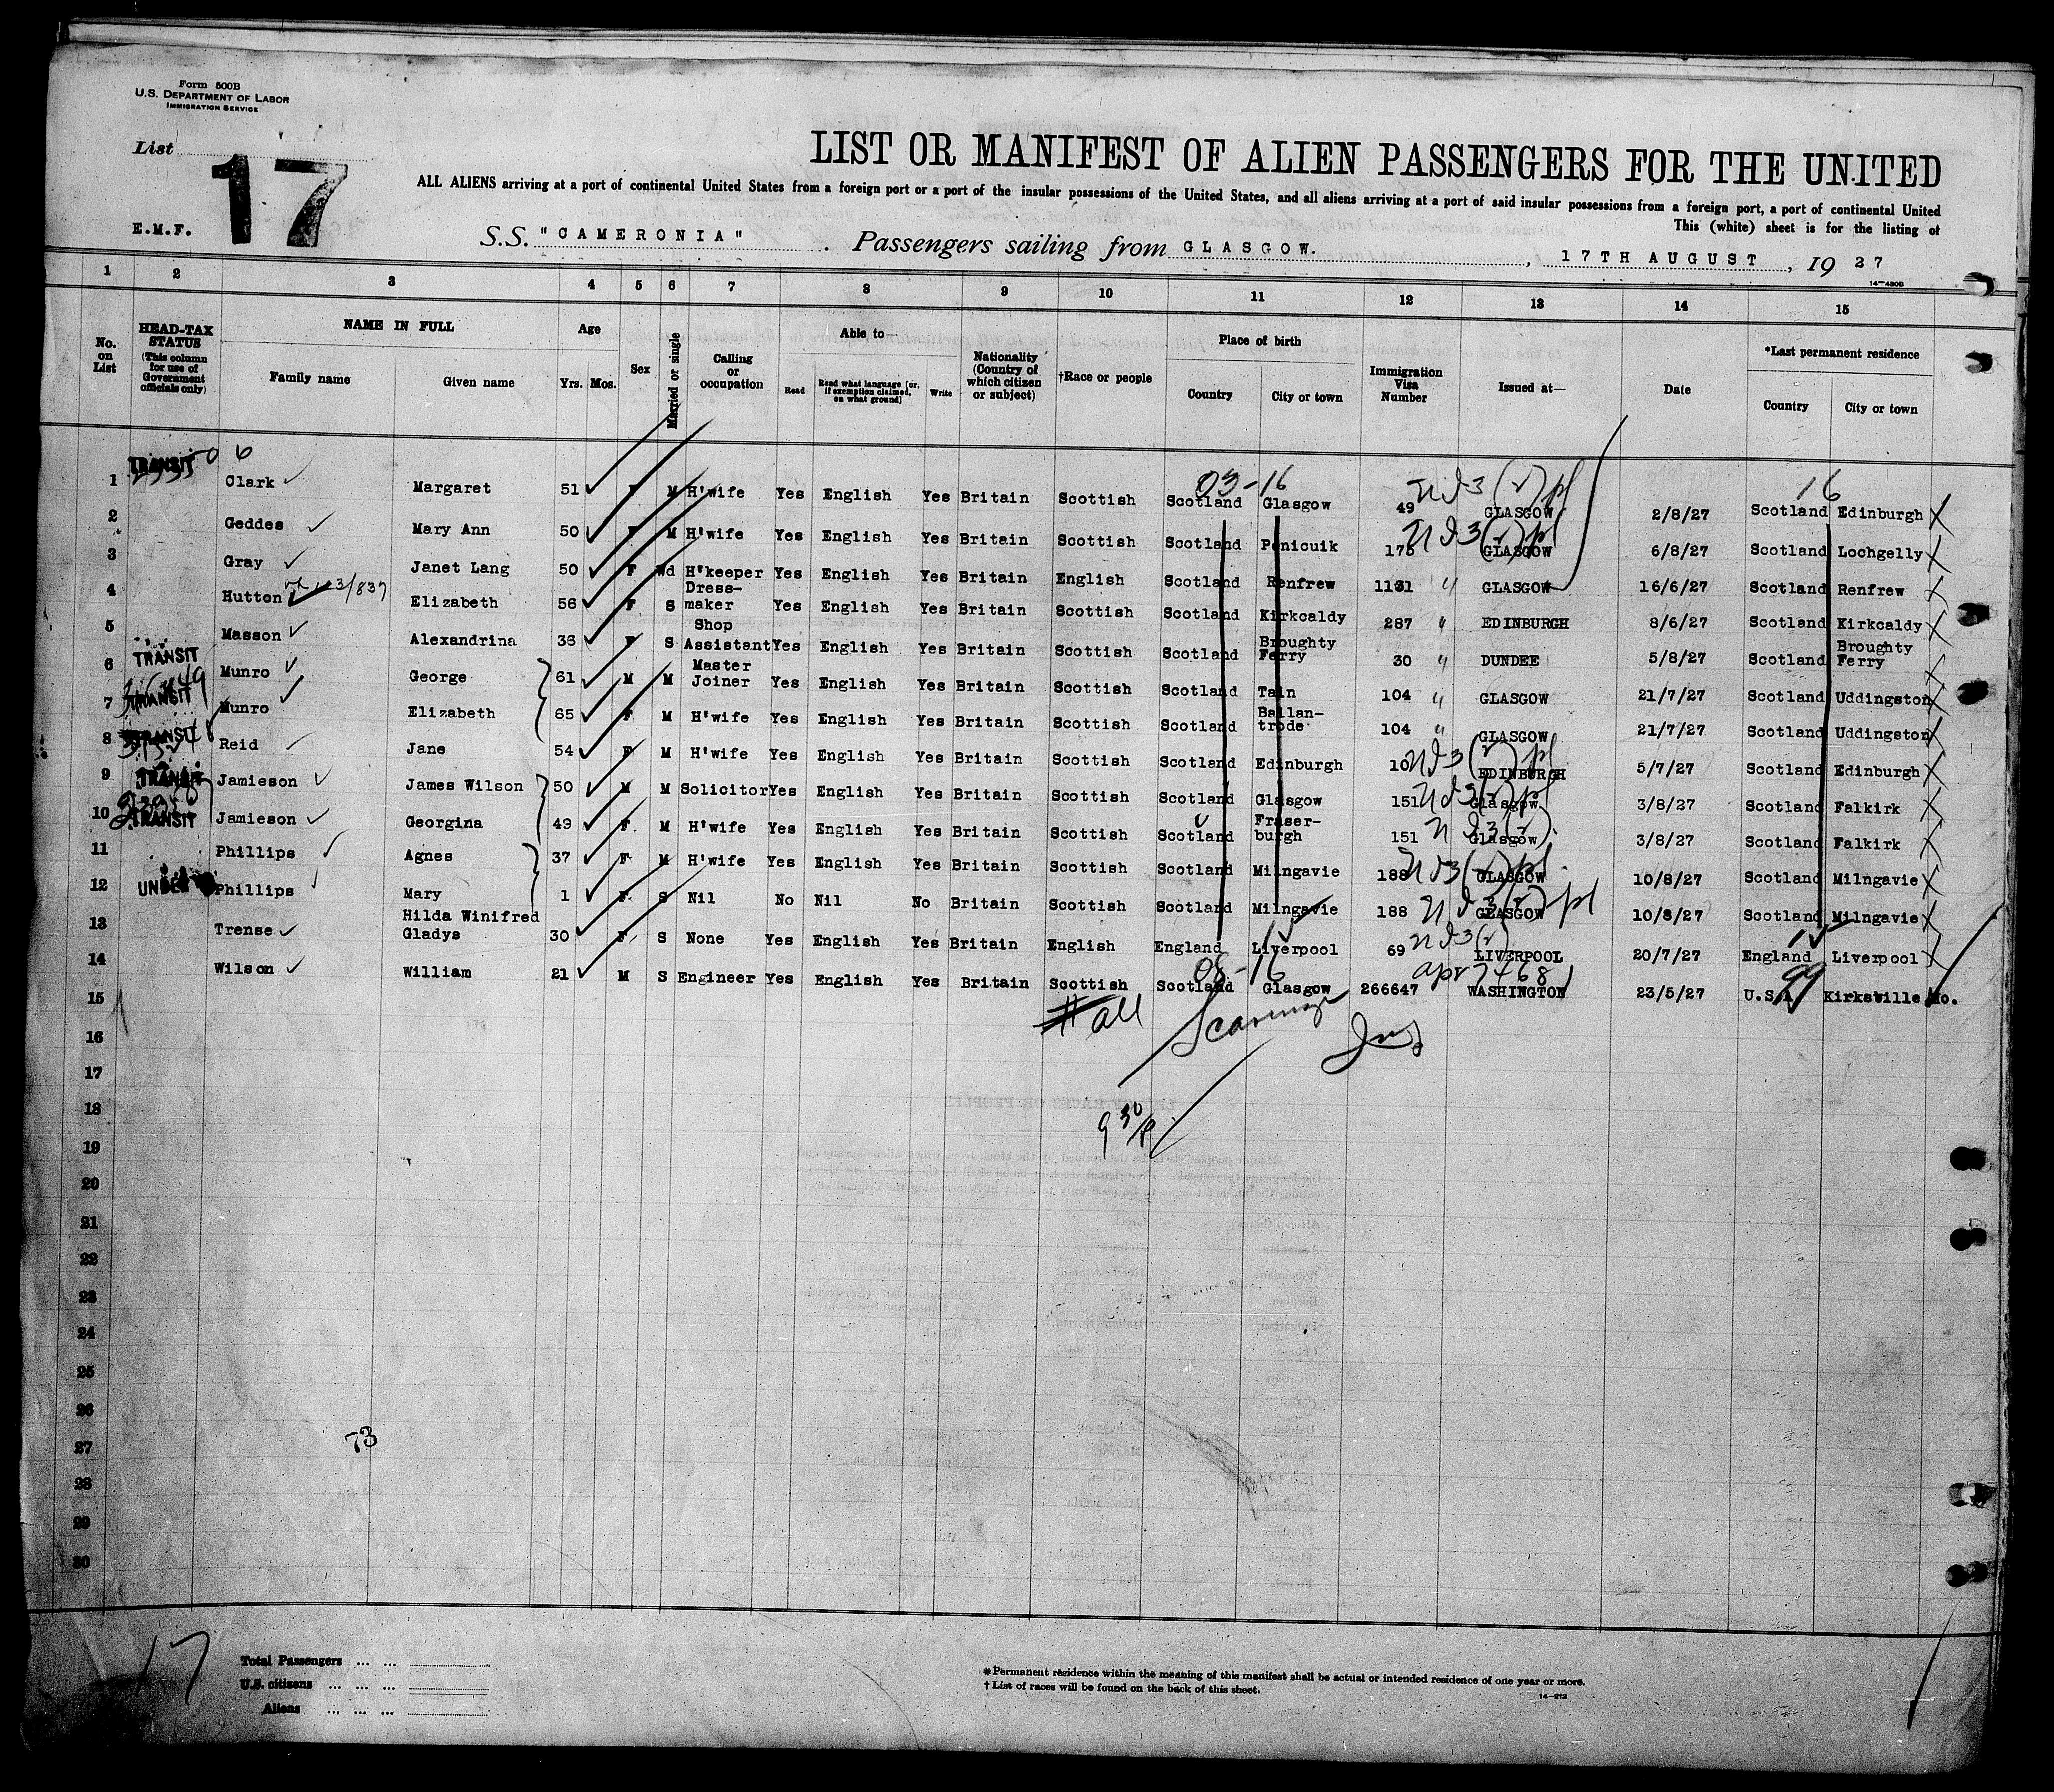 Form 500B
U.S. DEPARTMENT OF LABOR
IMMIGRATION SERVICE
List 17
LIST OR MANIFEST OF ALIEN PASSENGERS FOR THE UNITED
ALL ALIENS arriving at a port of continental United States from a foreign port or a port of the insular possessions of the United States, and all aliens arriving at a port of said insular possessions from a foreign port, a port of continental United
This (white) sheet is for the listing of
E.M.F.
S.S. "CAMERONIA" . Passengers sailing from GLASGOW. , 17TH AUGUST , 19 27
14—4306
1 2 3 4 5 6 7 8 9 10 11 12 13 14 15
No. on List
HEAD-TAX STATUS (This column for use of Government officials only)
NAME IN FULL
Family name Given name
Age Yrs. Mos.
Sex
Married or single
Calling or occupation
Able to—
Read Read what language [or, if exemption claimed, on what ground] Write
Nationality (Country of which citizen or subject)
†Race or people
Place of birth
Country City or town
Immigration Visa Number
Issued at—
Date
*Last permanent residence
Country City or town
TRANSIT 03-16 16
1 Clark Margaret 51 F M H'wife Yes English Yes Britain Scottish Scotland Glasgow 49 GLASGOW 2/8/27 Scotland Edinburgh
2 Geddes Mary Ann 50 F M H'wife Yes English Yes Britain Scottish Scotland Penicuik 175 GLASGOW 6/8/27 Scotland Lochgelly
3 Gray Janet Lang 50 F Wd H'keeper Yes English Yes Britain English Scotland Renfrew 1131 GLASGOW 16/6/27 Scotland Renfrew
4 Hutton Elizabeth 56 F S Dress-maker Yes English Yes Britain Scottish Scotland Kirkcaldy 287 EDINBURGH 8/6/27 Scotland Kirkcaldy
5 Masson Alexandrina 36 F S Shop Assistant Yes English Yes Britain Scottish Scotland Broughty Ferry 30 DUNDEE 5/8/27 Scotland Broughty Ferry
6 TRANSIT Munro George 61 M M Master Joiner Yes English Yes Britain Scottish Scotland Tain 104 GLASGOW 21/7/27 Scotland Uddingston
7 TRANSIT Munro Elizabeth 65 F M H'wife Yes English Yes Britain Scottish Scotland Ballan-trode 104 GLASGOW 21/7/27 Scotland Uddingston
8 TRANSIT Reid Jane 54 F M H'wife Yes English Yes Britain Scottish Scotland Edinburgh 10 EDINBURGH 5/7/27 Scotland Edinburgh
9 TRANSIT Jamieson James Wilson 50 M M Solicitor Yes English Yes Britain Scottish Scotland Glasgow 151 Glasgow 3/8/27 Scotland Falkirk
10 TRANSIT Jamieson Georgina 49 F. M H'wife Yes English Yes Britain Scottish Scotland Fraser-burgh 151 Glasgow 3/8/27 Scotland Falkirk
11 Phillips Agnes 37 F M H'wife Yes English Yes Britain Scottish Scotland Milngavie 188 GLASGOW 10/8/27 Scotland Milngavie
12 UNDER Phillips Mary 1 F S Nil No Nil No Britain Scottish Scotland Milngavie 188 GLASGOW 10/8/27 Scotland Milngavie
13 Trense Hilda Winifred Gladys 30 F S None Yes English Yes Britain English England Liverpool 69 LIVERPOOL 20/7/27 England Liverpool
08-16 99
14 Wilson William 21 M S Engineer Yes English Yes Britain Scottish Scotland Glasgow 266647 WASHINGTON 23/5/27 U.S.A. Kirksville Mo.
15
all
16
17
18
19
20
21
22
23
24
25
26
27
73
28
29
30
17
Total Passengers ... ...
U.S. citizens ... ... ...
Aliens ... ... ...
* Permanent residence within the meaning of this manifest shall be actual or intended residence of one year or more.
† List of races will be found on the back of this sheet.
14—213